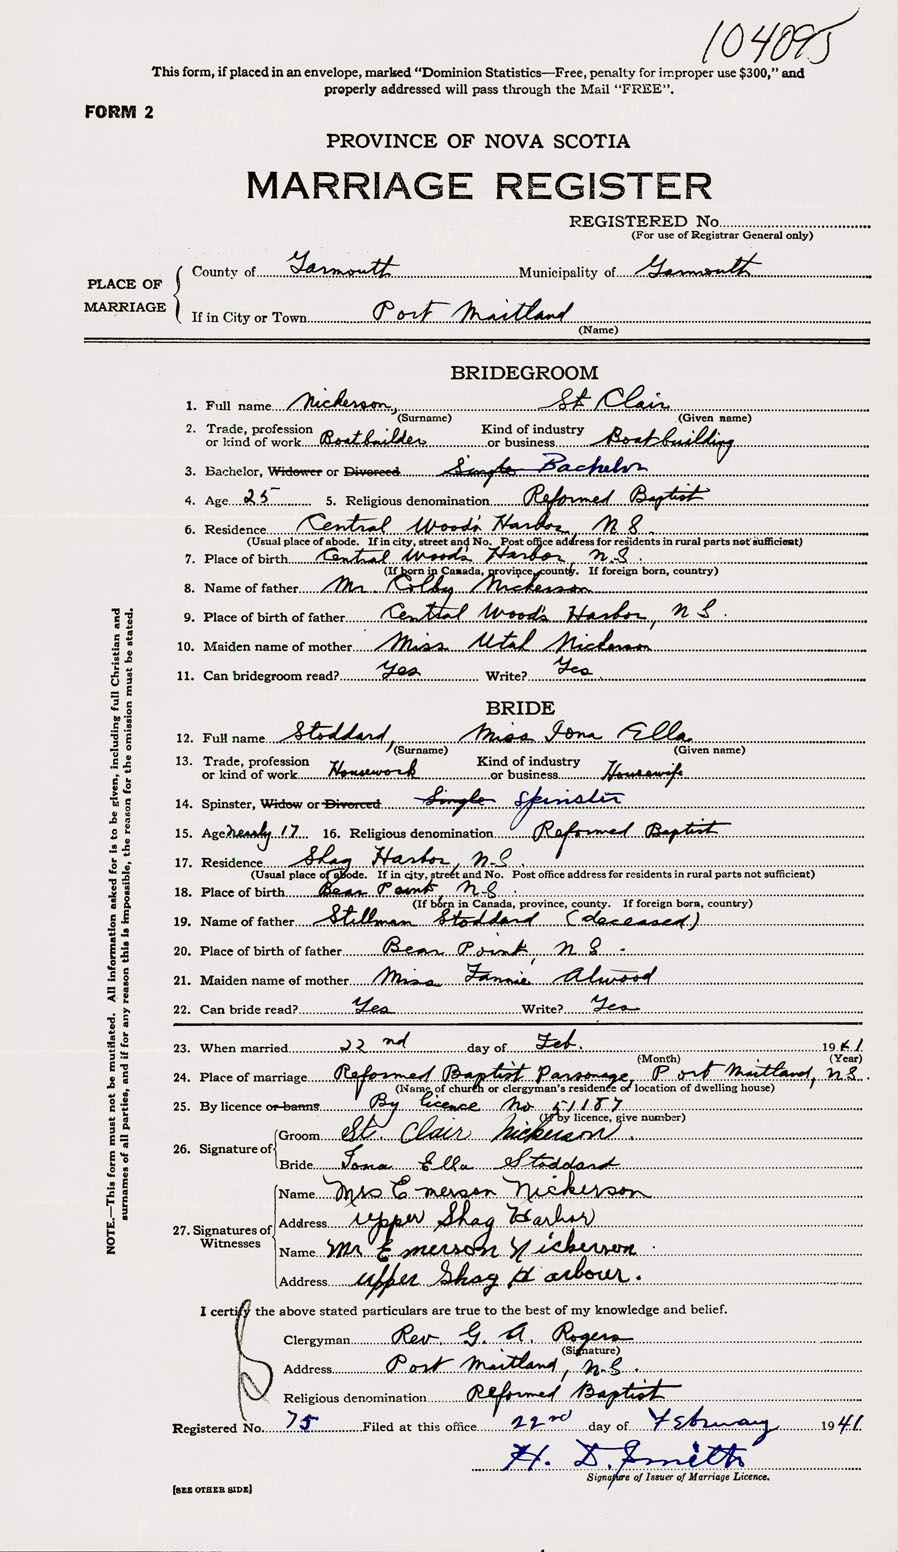 104095
This form, if placed in an envelope, marked “Dominion Statistics—Free, penalty for improper use $300,” and
properly addressed will pass through the Mail “FREE”.
FORM 2
PROVINCE OF NOVA SCOTIA
MARRIAGE REGISTER
REGISTERED No.
(For use of Registrar General only)
PLACE OF MARRIAGE
County of Yarmouth Municipality of Yarmouth
If in City or Town Port Maitland
(Name)
BRIDEGROOM
1. Full name Nickerson, St. Clair
(Surname) (Given name)
2. Trade, profession or kind of work Boatbuilder Kind of industry or business Boatbuilding
3. Bachelor, Widower or Divorced Single Bachelor
4. Age 25 5. Religious denomination Reformed Baptist
6. Residence Central Woods Harbor, N.S.
(Usual place of abode. If in city, street and No. Post office address for residents in rural parts not sufficient)
7. Place of birth Central Woods Harbor, N.S.
(If born in Canada, province, county. If foreign born, country)
8. Name of father Mr. Colby Nickerson
9. Place of birth of father Central Woods Harbor, N S.
10. Maiden name of mother Miss Utah Nickerson
11. Can bridegroom read? Yes Write? Yes
BRIDE
12. Full name Stoddard, Miss Iona Ella
(Surname) (Given name)
13. Trade, profession or kind of work Housework Kind of industry or business Housewife
14. Spinster, Widow or Divorced Single Spinster
15. Age nearly 17 16. Religious denomination Reformed Baptist
17. Residence Shag Harbor, N.S.
(Usual place of abode. If in city, street and No. Post office address for residents in rural parts not sufficient)
18. Place of birth Bear Point, N.S.
(If born in Canada, province, county. If foreign born, country)
19. Name of father Stillman Stoddard (deceased)
20. Place of birth of father Bear Point, N.S.
21. Maiden name of mother Miss Fannie Atwood
22. Can bride read? Yes Write? Yes
23. When married 22nd day of Feb. 1941
(Month) (Year)
24. Place of marriage Reformed Baptist Parsonage, Port Maitland, N.S.
(Name of church or clergyman's residence or location of dwelling house)
25. By licence or banns By licence No. 51187
(If by licence, give number)
26. Signature of
Groom St. Clair Nickerson.
Bride Iona Ella Stoddard
27. Signatures of Witnesses
Name Mrs Emerson Nickerson
Address upper Shag Harbor
Name Mr Emerson Nickerson
Address upper Shag Harbour.
I certify the above stated particulars are true to the best of my knowledge and belief.
Clergyman Rev. G. A. Rogers
(Signature)
Address Port Maitland, N.S.
Religious denomination Reformed Baptist
Registered No. 75 Filed at this office 22nd day of February 1941
H. D. Smith
Signature of Issuer of Marriage Licence.
[SEE OTHER SIDE]
NOTE.—This form must not be mutilated. All information asked for is to be given, including full Christian and
surnames of all parties, and if for any reason this is impossible, the reason for the omission must be stated.